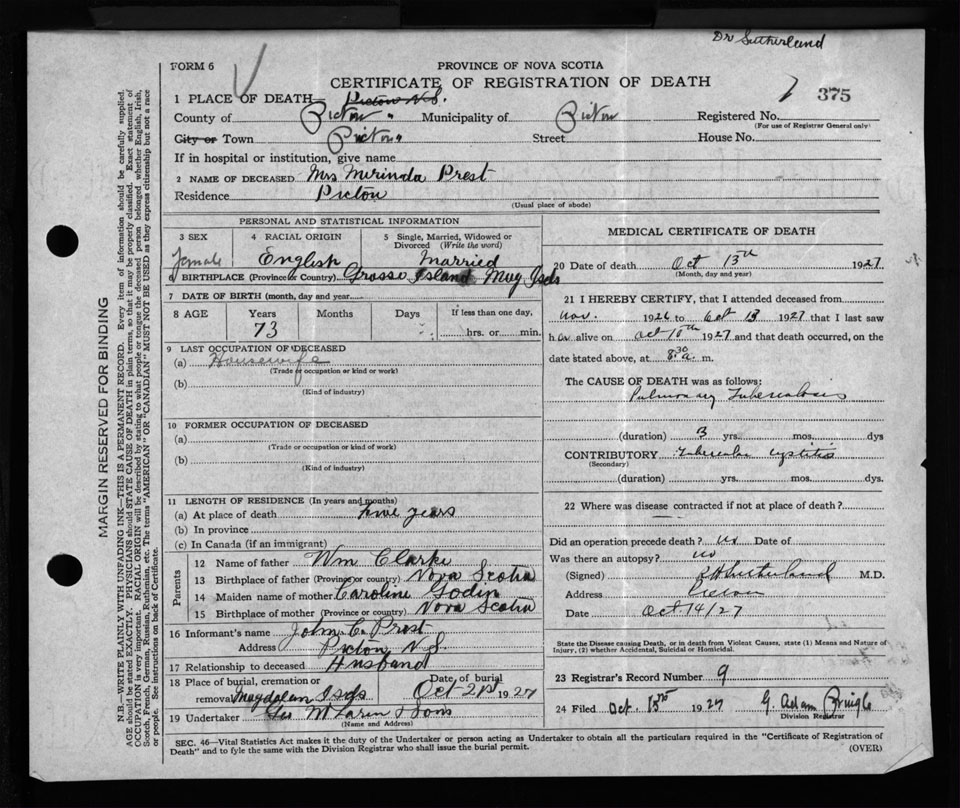 Dr Sutherland
FORM 6
PROVINCE OF NOVA SCOTIA
CERTIFICATE OF REGISTRATION OF DEATH
375
1 PLACE OF DEATH Pictou N.S.
County of Pictou " Municipality of Pictou Registered No.
(For use of Registrar General only)
City or Town Pictou Street House No.
If in hospital or institution, give name
2 NAME OF DECEASED Mrs Merinda Prest
Residence Pictou
(Usual place of abode)
PERSONAL AND STATISTICAL INFORMATION
3 SEX 4 RACIAL ORIGIN 5 Single, Married, Widowed or Divorced (Write the word)
female English Married
6 BIRTHPLACE (Province or Country) Grosse Island Mag Isds
7 DATE OF BIRTH (month, day and year)
8 AGE Years Months Days If less than one day,
73 hrs. or min.
9 LAST OCCUPATION OF DECEASED
(a) Housewife
(Trade or occupation or kind or work)
(b)
(Kind of industry)
10 FORMER OCCUPATION OF DECEASED
(a)
(Trade or occupation or kind of work)
(b)
(Kind of industry)
11 LENGTH OF RESIDENCE (In years and months)
(a) At place of death five years
(b) In province
(c) In Canada (if an immigrant)
Parents
12 Name of father Wm Clarke
13 Birthplace of father (Province or country) Nova Scotia
14 Maiden name of mother Caroline Godin
15 Birthplace of mother (Province or country) Nova Scotia
16 Informant's name John C. Prest
Address Pictou N.S.
17 Relationship to deceased Husband
18 Place of burial, cremation or removal Magdalen Isds Date of burial Oct 21st 1927
19 Undertaker Geo McLaren & Sons
(Name and Address)
MEDICAL CERTIFICATE OF DEATH
20 Date of death Oct 13th 1927
(Month, day and year)
21 I HEREBY CERTIFY, that I attended deceased from
Nov. 1926 to Oct 13 1927 that I last saw
her alive on Oct 10th 1927 and that death occurred, on the
date stated above, at 8.30 a. m.
The CAUSE OF DEATH was as follows:
Pulmonary Tuberculosis
(duration) 3 yrs. mos. dys
CONTRIBUTORY Tubercular cystitis
(Secondary)
(duration) yrs. mos. dys.
22 Where was disease contracted if not at place of death?
Did an operation precede death? no Date of
Was there an autopsy? no
(Signed) Sutherland M.D.
Address Pictou
Date Oct 14/27
State the Disease causing Death, or in death from Violent Causes, state (1) Means and Nature of
Injury, (2) whether Accidental, Suicidal or Homicidal.
23 Registrar's Record Number 9
24 Filed Oct. 15th 1927 G. Adam Pringle
Division Registrar
SEC. 46—Vital Statistics Act makes it the duty of the Undertaker or person acting as Undertaker to obtain all the particulars required in the "Certificate of Registration of
Death" and to fyle the same with the Division Registrar who shall issue the burial permit.
(OVER)
MARGIN RESERVED FOR BINDING
N.B.—WRITE PLAINLY WITH UNFADING INK—THIS IS A PERMANENT RECORD. Every item of information should be carefully supplied.
AGE should be stated EXACTLY. PHYSICIANS should STATE CAUSE OF DEATH in plain terms, so that it may be properly classified. Exact statement of
OCCUPATION is very important. RACIAL ORIGIN will be described by stating to what people or tongue the deceased person belonged, whether English, Irish,
Scotch, French, German, Russian, Ruthenian, etc. The terms "AMERICAN" OR "CANADIAN" MUST NOT BE USED as they express citizenship but not a race
or people. See instructions on back of Certificate.